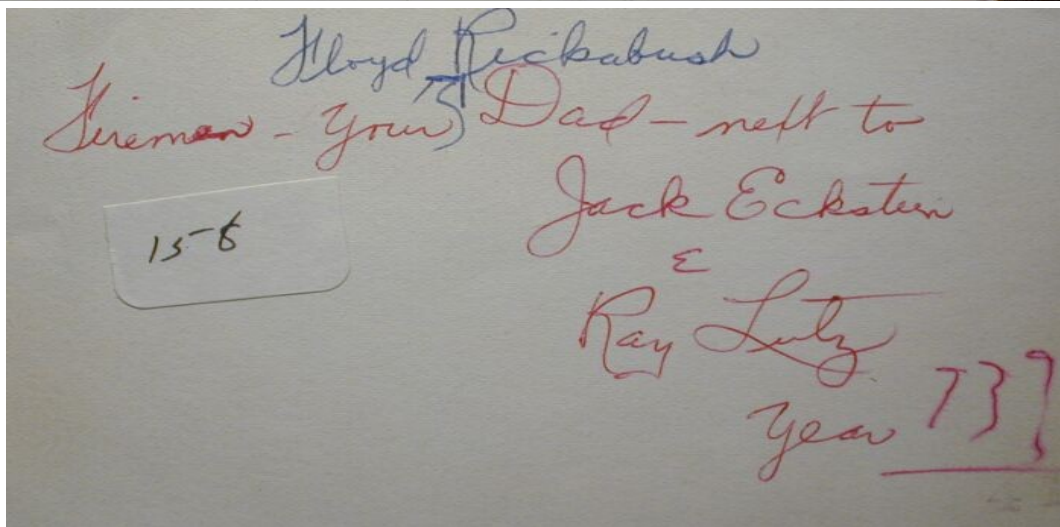 Floyd Rickabush
Fireman - Your Dad - next to
Jack Eckstein
&
15-8
Ray Lutz
Year 73?